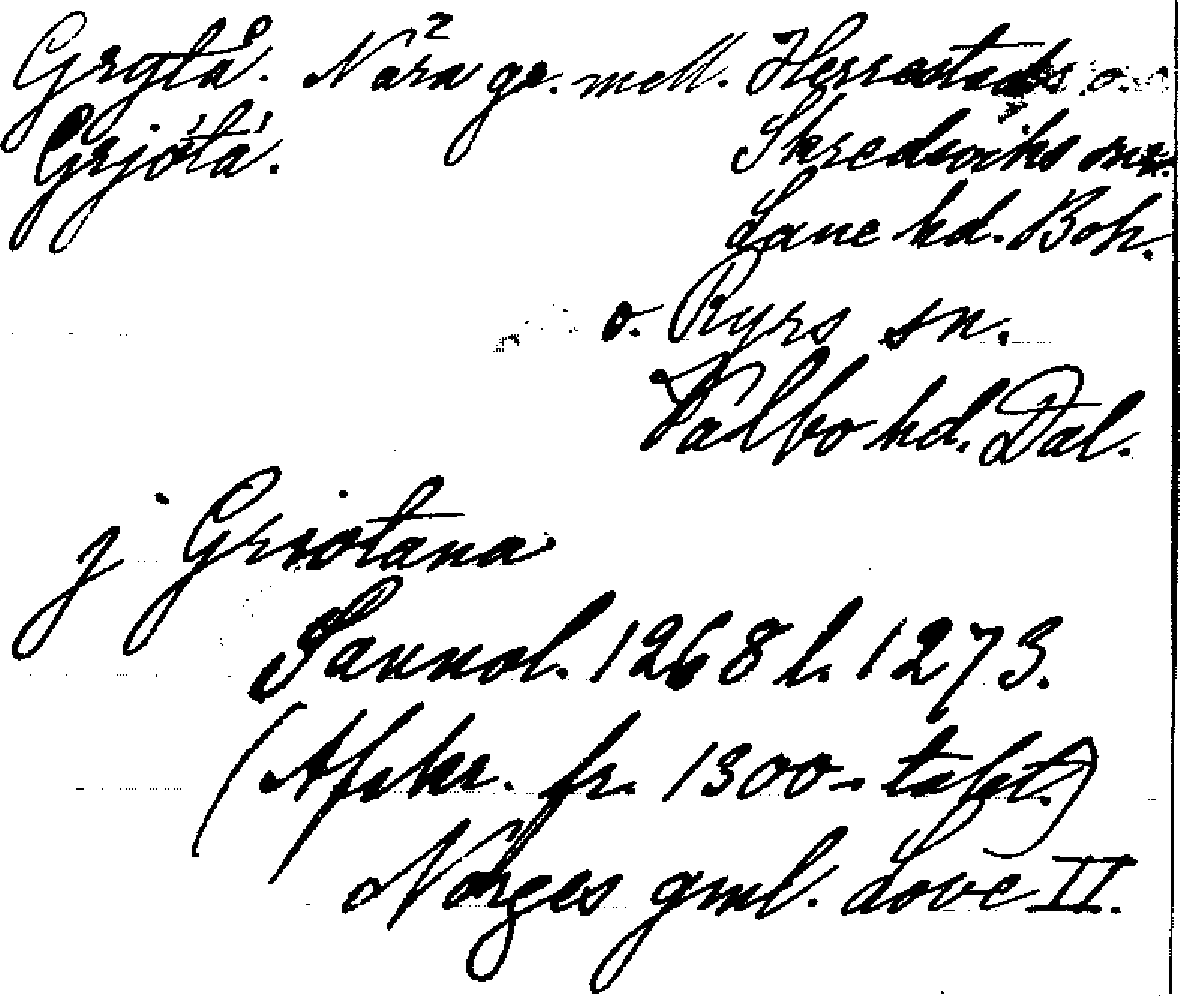 Grytå. Nära gr. mell. Herrestads o.
Grjótá. Skredsviks snr.
Lane hd. Boh.
o. Ryrs sn.
Valbo hd. Dal.
j Griotana
Sannol. 1268 l. 1273.
(Afskr. fr. 1300-talet.)
Norges gml. Love II.